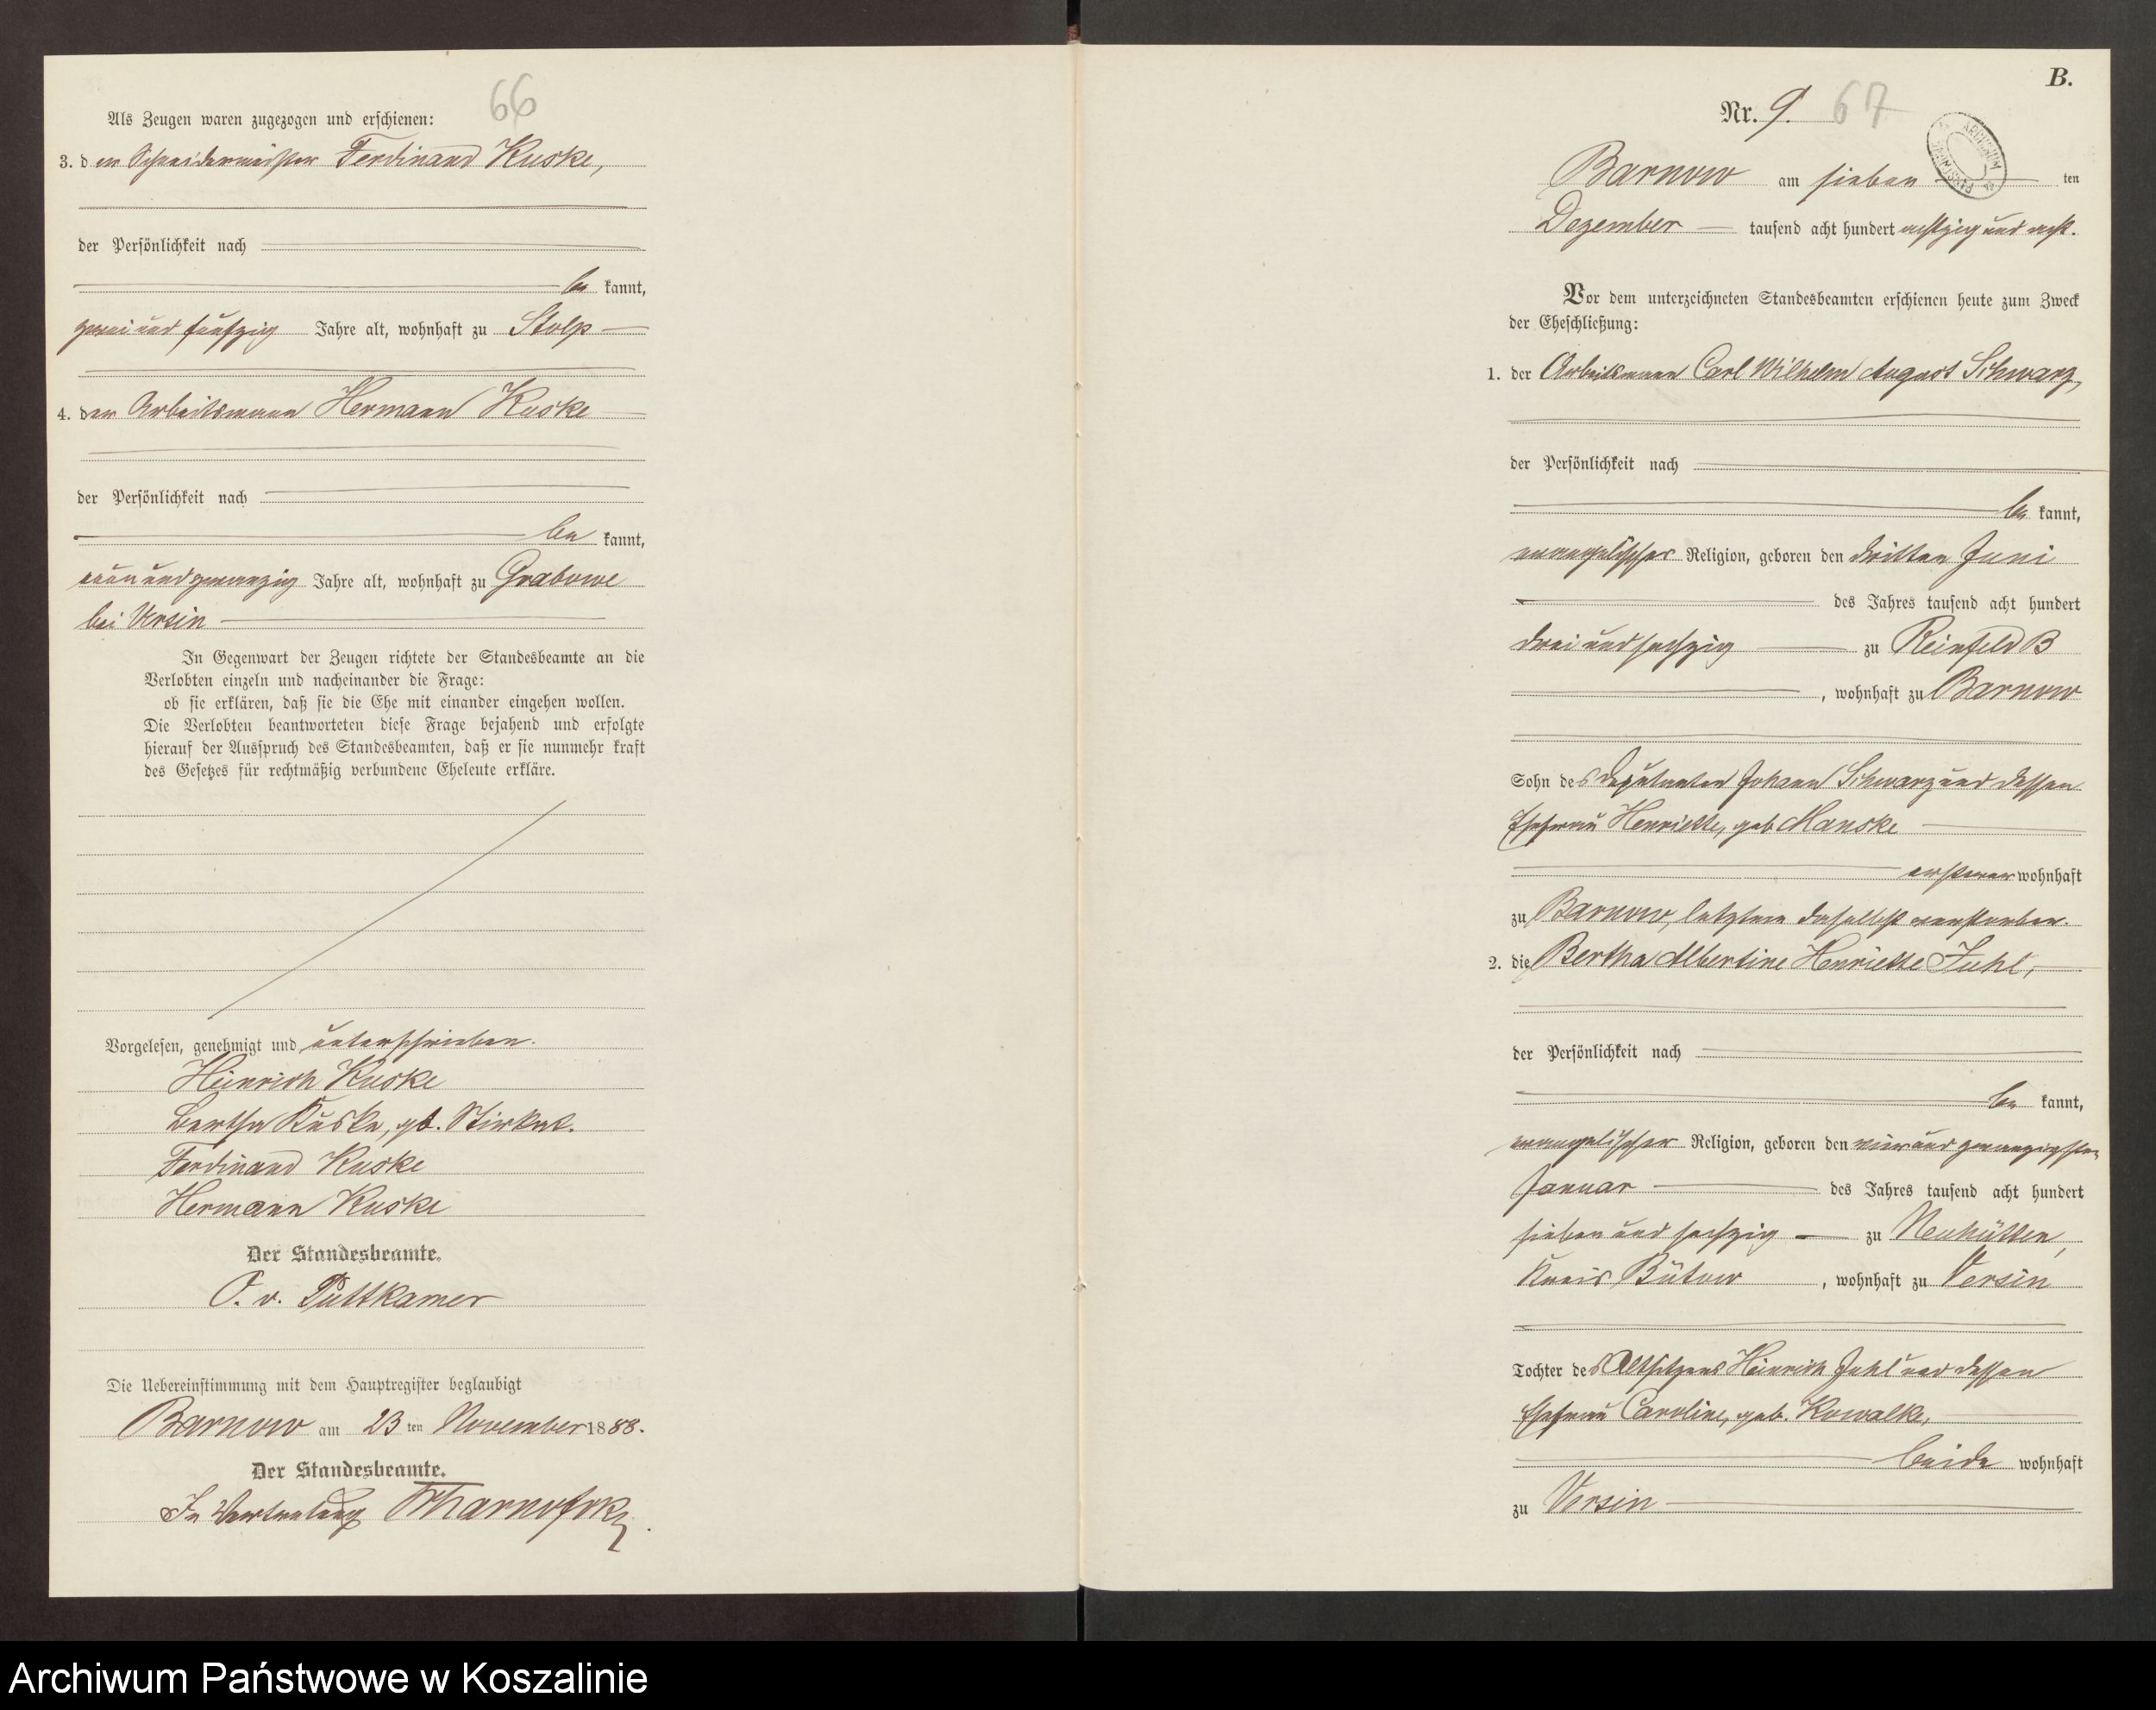 66
Als Zeugen waren zugezogen und erschienen:
3. den Schneidermeister Ferdinand Kuske,
der Persönlichkeit nach
be kannt,
zwei und fünfzig Jahre alt, wohnhaft zu Stolp
4. den Arbeitsmann Hermann Kuske
der Persönlichkeit nach
be kannt,
neun und zwanzig Jahre alt, wohnhaft zu Grabowe
bei Versin
In Gegenwart der Zeugen richtete der Standesbeamte an die
Verlobten einzeln und nacheinander die Frage:
ob sie erklären, daß sie die Ehe mit einander eingehen wollen.
Die Verlobten beantworteten diese Frage bejahend und erfolgte
hierauf der Ausspruch des Standesbeamten, daß er sie nunmehr kraft
des Gesetzes für rechtmäßig verbundene Eheleute erkläre.
Vorgelesen, genehmigt und unterschrieben.
Heinrich Kuske
Bertha Kuske, gb.
Ferdinand Kuske
Hermann Kuske
Der Standesbeamte.
O. v. Puttkamer
Die Uebereinstimmung mit dem Hauptregister beglaubigt
Barnow am 23 ten November 1888.
Der Standesbeamte.
In Vertretung
B.
Nr. 9. 67
ARCHIWUM
Barnow am sieben ten
Dezember tausend acht hundert achtzig und acht.
Vor dem unterzeichneten Standesbeamten erschienen heute zum Zweck
der Eheschließung:
1. der Arbeitsmann Carl Wilhelm August Schwarz,
der Persönlichkeit nach
be kannt,
evangelischer Religion, geboren den dritten Juni
des Jahres tausend acht hundert
drei und sechzig zu Reinfeld B
, wohnhaft zu Barnow
Sohn des Deputanten Johann Schwarz und dessen
Ehefrau Henriette, geb Manske
ersterer wohnhaft
zu Barnow, letztere daselbst verstorben.
2. die Bertha Albertine Henriette Juhl,
der Persönlichkeit nach
be kannt,
evangelischer Religion, geboren den vier und zwanzigsten
Januar des Jahres tausend acht hundert
sieben und sechzig zu Neuhütten,
Kreis Bütow, wohnhaft zu Versin
Tochter des Altsitzers Heinrich Juhl und dessen
Ehefrau Caroline, geb. Kowalke,
beide wohnhaft
zu Versin
Archiwum Państwowe w Koszalinie